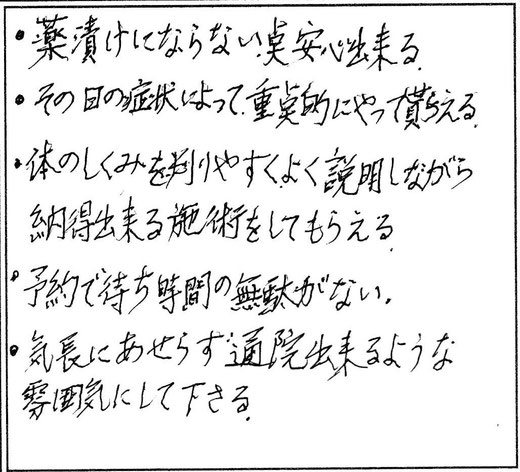 ・薬漬けにならない点安心出来る.
・その日の症状によって重点的にやって貰える.
・体のしくみを判りやすくよく説明しながら
納得出来る施術をしてもらえる.
・予約で待ち時間の無駄がない.
・気長にあせらず通院出来るような
雰囲気にして下さる.